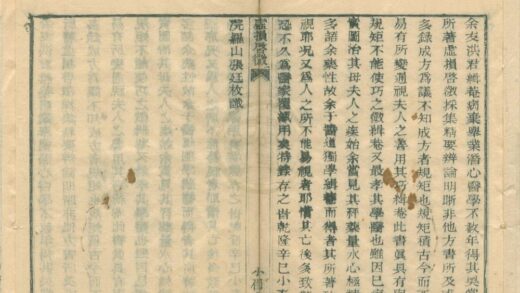 余友洪君緝菴病棄舉業潛心醫學不数年得其奥
所著虚損啓微採集精要辨論明晰非他方書所及
多錄成方為議不知成方者規矩也規矩積古今而不
易有所變通視夫人之善用其巧緝菴此書眞具有
規矩不能使巧之微緝菴又最孝其學醫也雖因已
實圖治其母夫人之疾始余嘗見其秤藥量水心極
多諳余藥性故余于醫道獨學緝菴而得者其所著
視耶况又爲人之所不能易視者耶惜其亡後
忍不久爲醫家用爰特錄存之時乾隆辛巳小
虚損啓微
小
院羅山張廷枚識